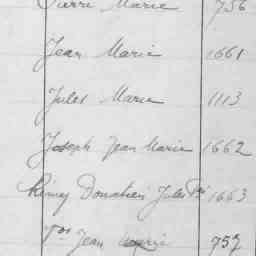 Pierre Marie 756
Jean Marie 1661
Jules Marie 1113
Joseph Jean Marie 1662
Rémy Donatien Jules 1663
Jean Marie 757